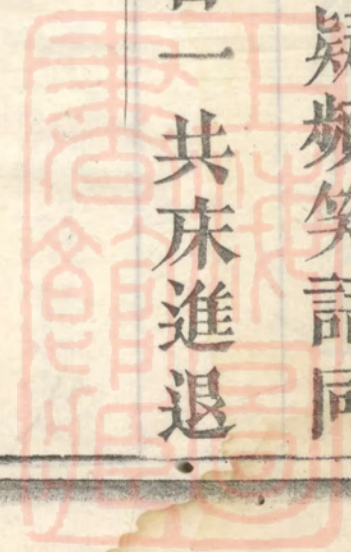 疑頻笑語同
一 共床進退